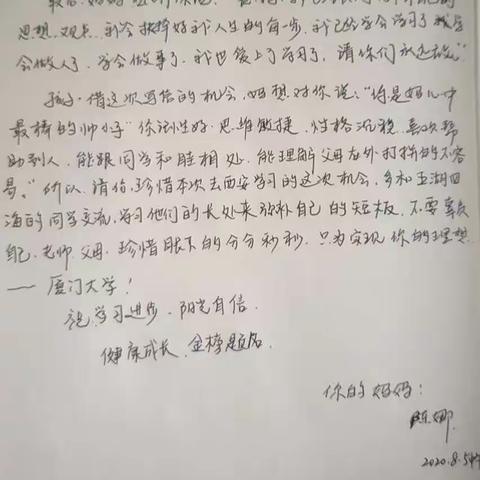 思想、观点,我会扶持好我人生的每一步,我已经学会学习了我学
会做人了,学会做事了,我也爱上了学习了,请你们永远放心"
孩子,借这次写信的机会,妈想对你说:"你是妈心中
最棒的帅小子"你个性好,思维敏捷,性格沉稳,喜欢帮
助别人,能跟同学和睦相处,能理解父母在外打拼的不容
易。"所以,请你,珍惜本次去西安学习的这次机会,多和五湖四
海的同学交流,学习他们的长处来弥补自己的短板,不要辜负
自己、老师、父母,珍惜眼下的分分秒秒,只为实现你的理想
——厦门大学!
祝学习进步,阳光自信
健康成长,金榜题名。
你的妈妈:
陈娜
2020.8.5